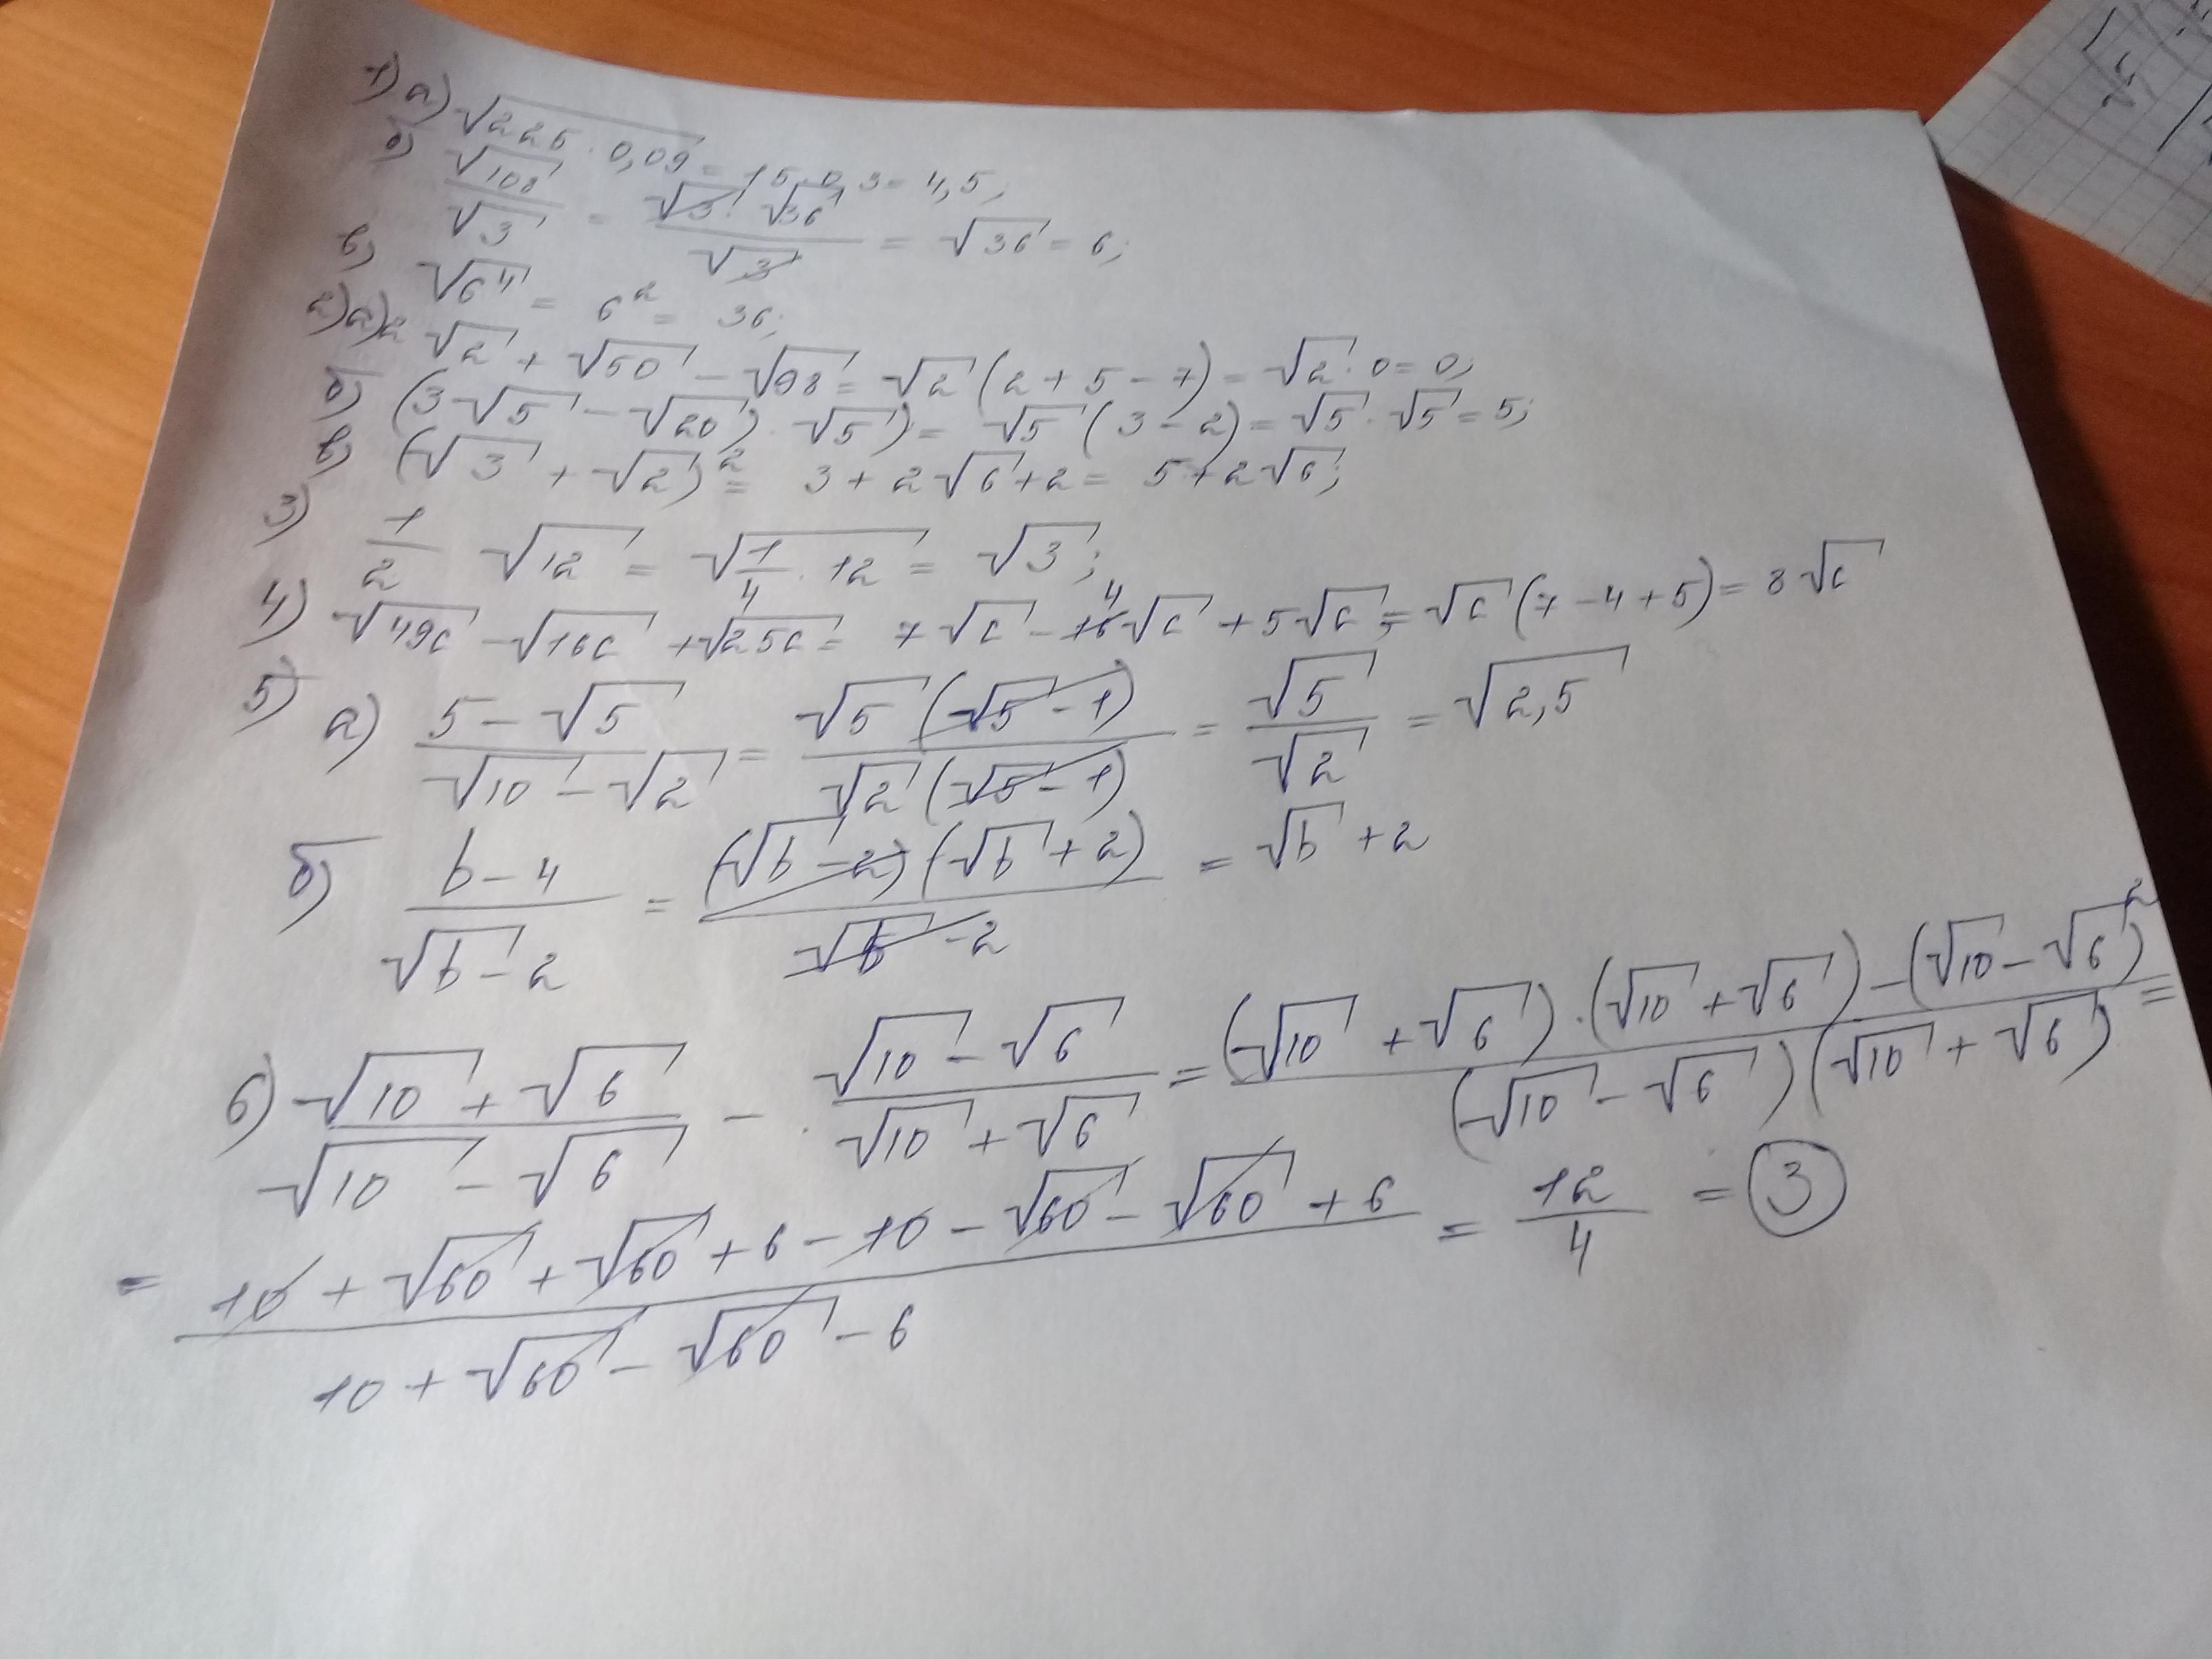 1) а) √225·0,09 = 15·0,3 = 4,5;
б) √108/√3 = √3·√36/√3 = √36 = 6;
в) √6⁴ = 6² = 36;
2) а) 2√2 + √50 − √98 = √2 (2 + 5 − 7) = √2 · 0 = 0;
б) (3√5 − √20) · √5) = √5 (3 − 2) = √5 · √5 = 5;
в) (√3 + √2)² = 3 + 2√6 + 2 = 5 + 2√6;
3) 1/2 √12 = √1/4 · 12 = √3;
4) √49c − √16c + √25c = 7√c − 4√c + 5√c = √c (7 − 4 + 5) = 8√c
5) а) (5 − √5)/(√10 − √2) = √5(√5 − 1)/√2(√5 − 1) = √5/√2 = √2,5
б) (b − 4)/(√b − 2) = (√b − 2)(√b + 2)/(√b − 2) = √b + 2
6) (√10 + √6)/(√10 − √6) − (√10 − √6)/(√10 + √6) = ((√10 + √6)·(√10 + √6) − (√10 − √6)²)/((√10 − √6)(√10 + √6)) =
= (10 + √60 + √60 + 6 − 10 − √60 − √60 + 6)/(10 + √60 − √60 − 6) = 12/4 = 3